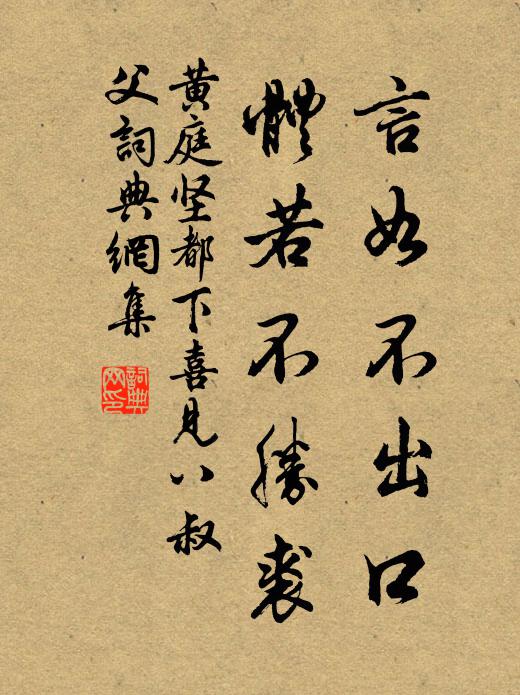 言如不出口
體若不勝裘
黄庭坚都下喜見八叔
父詞典網集
詞典網印